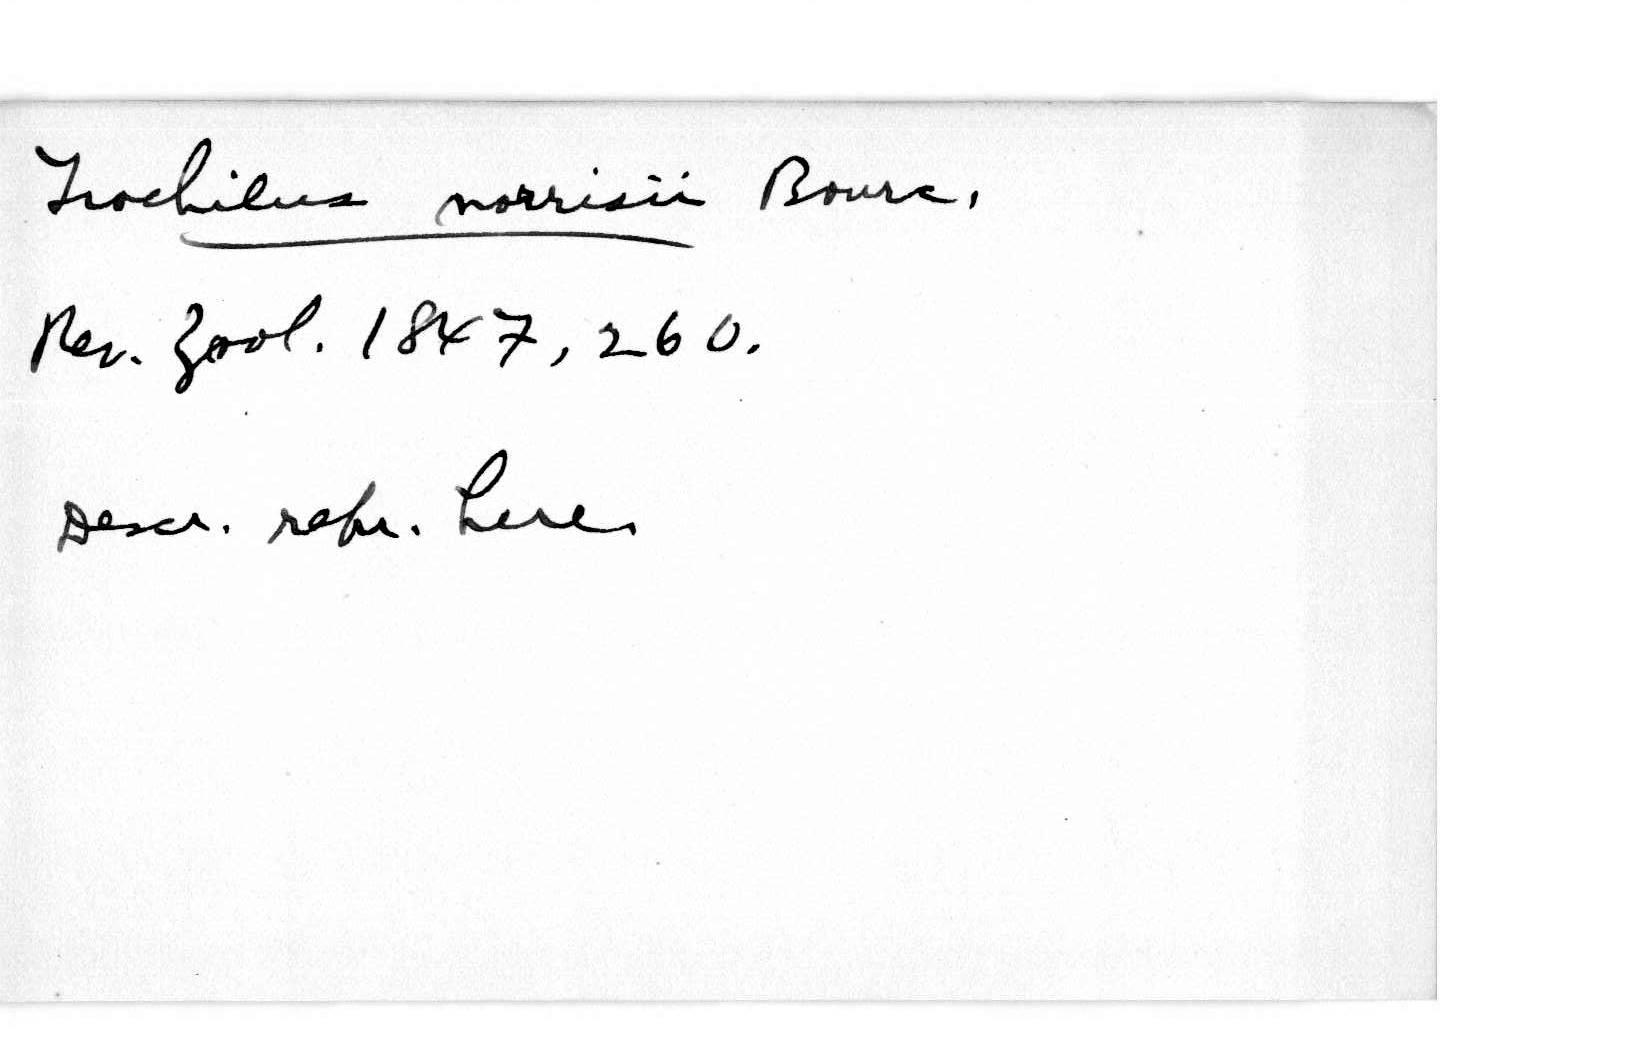 Trochilus norrisii Bourc.
Rev. Zool. 1847, 260.
Descr. repr. here.